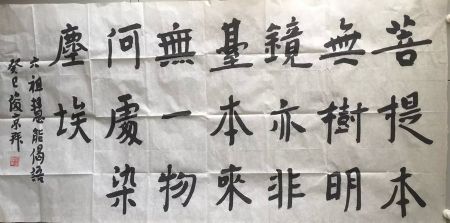 菩提本
無樹明
鏡亦非
臺本來
無一物
何處染
塵埃
六祖慧能偈語
癸巳